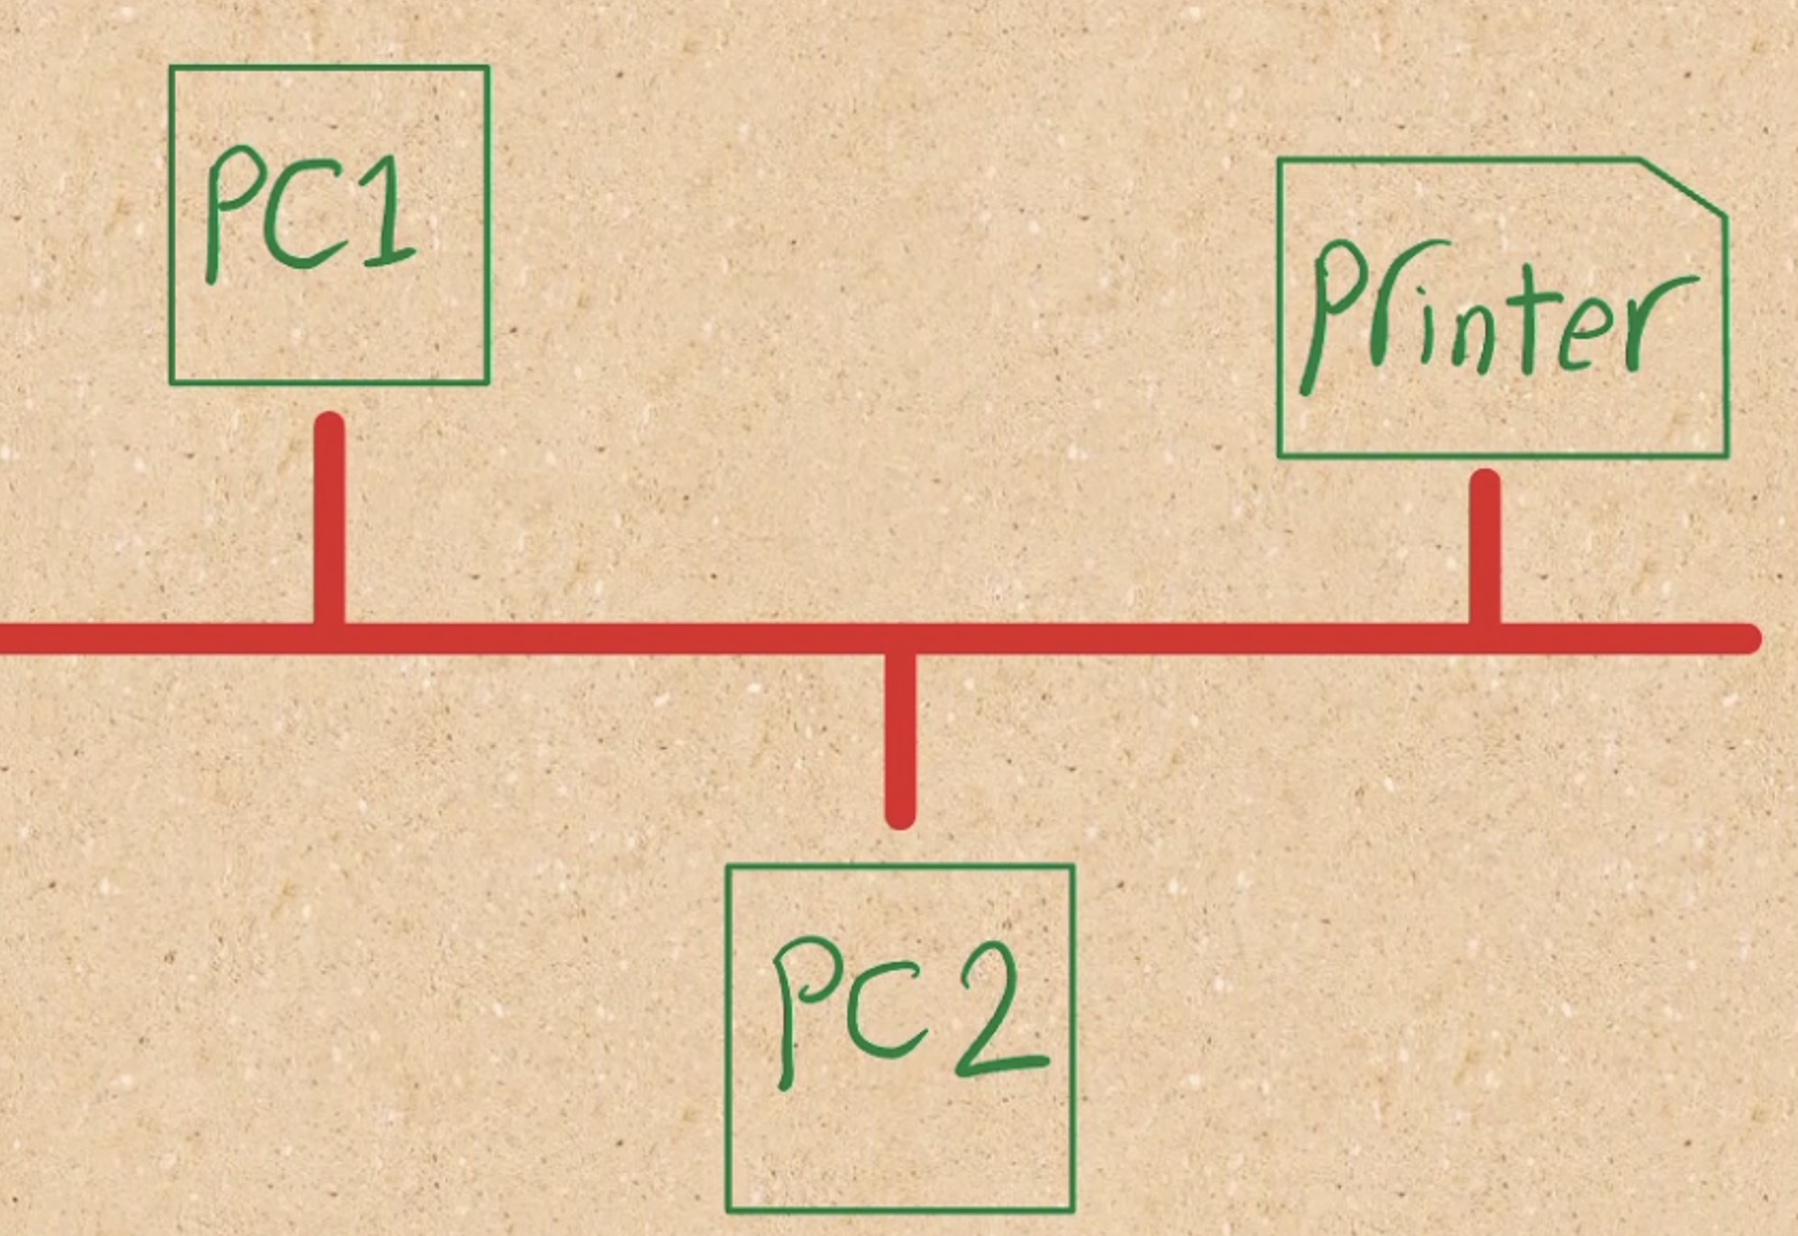 PC1
Printer
PC2